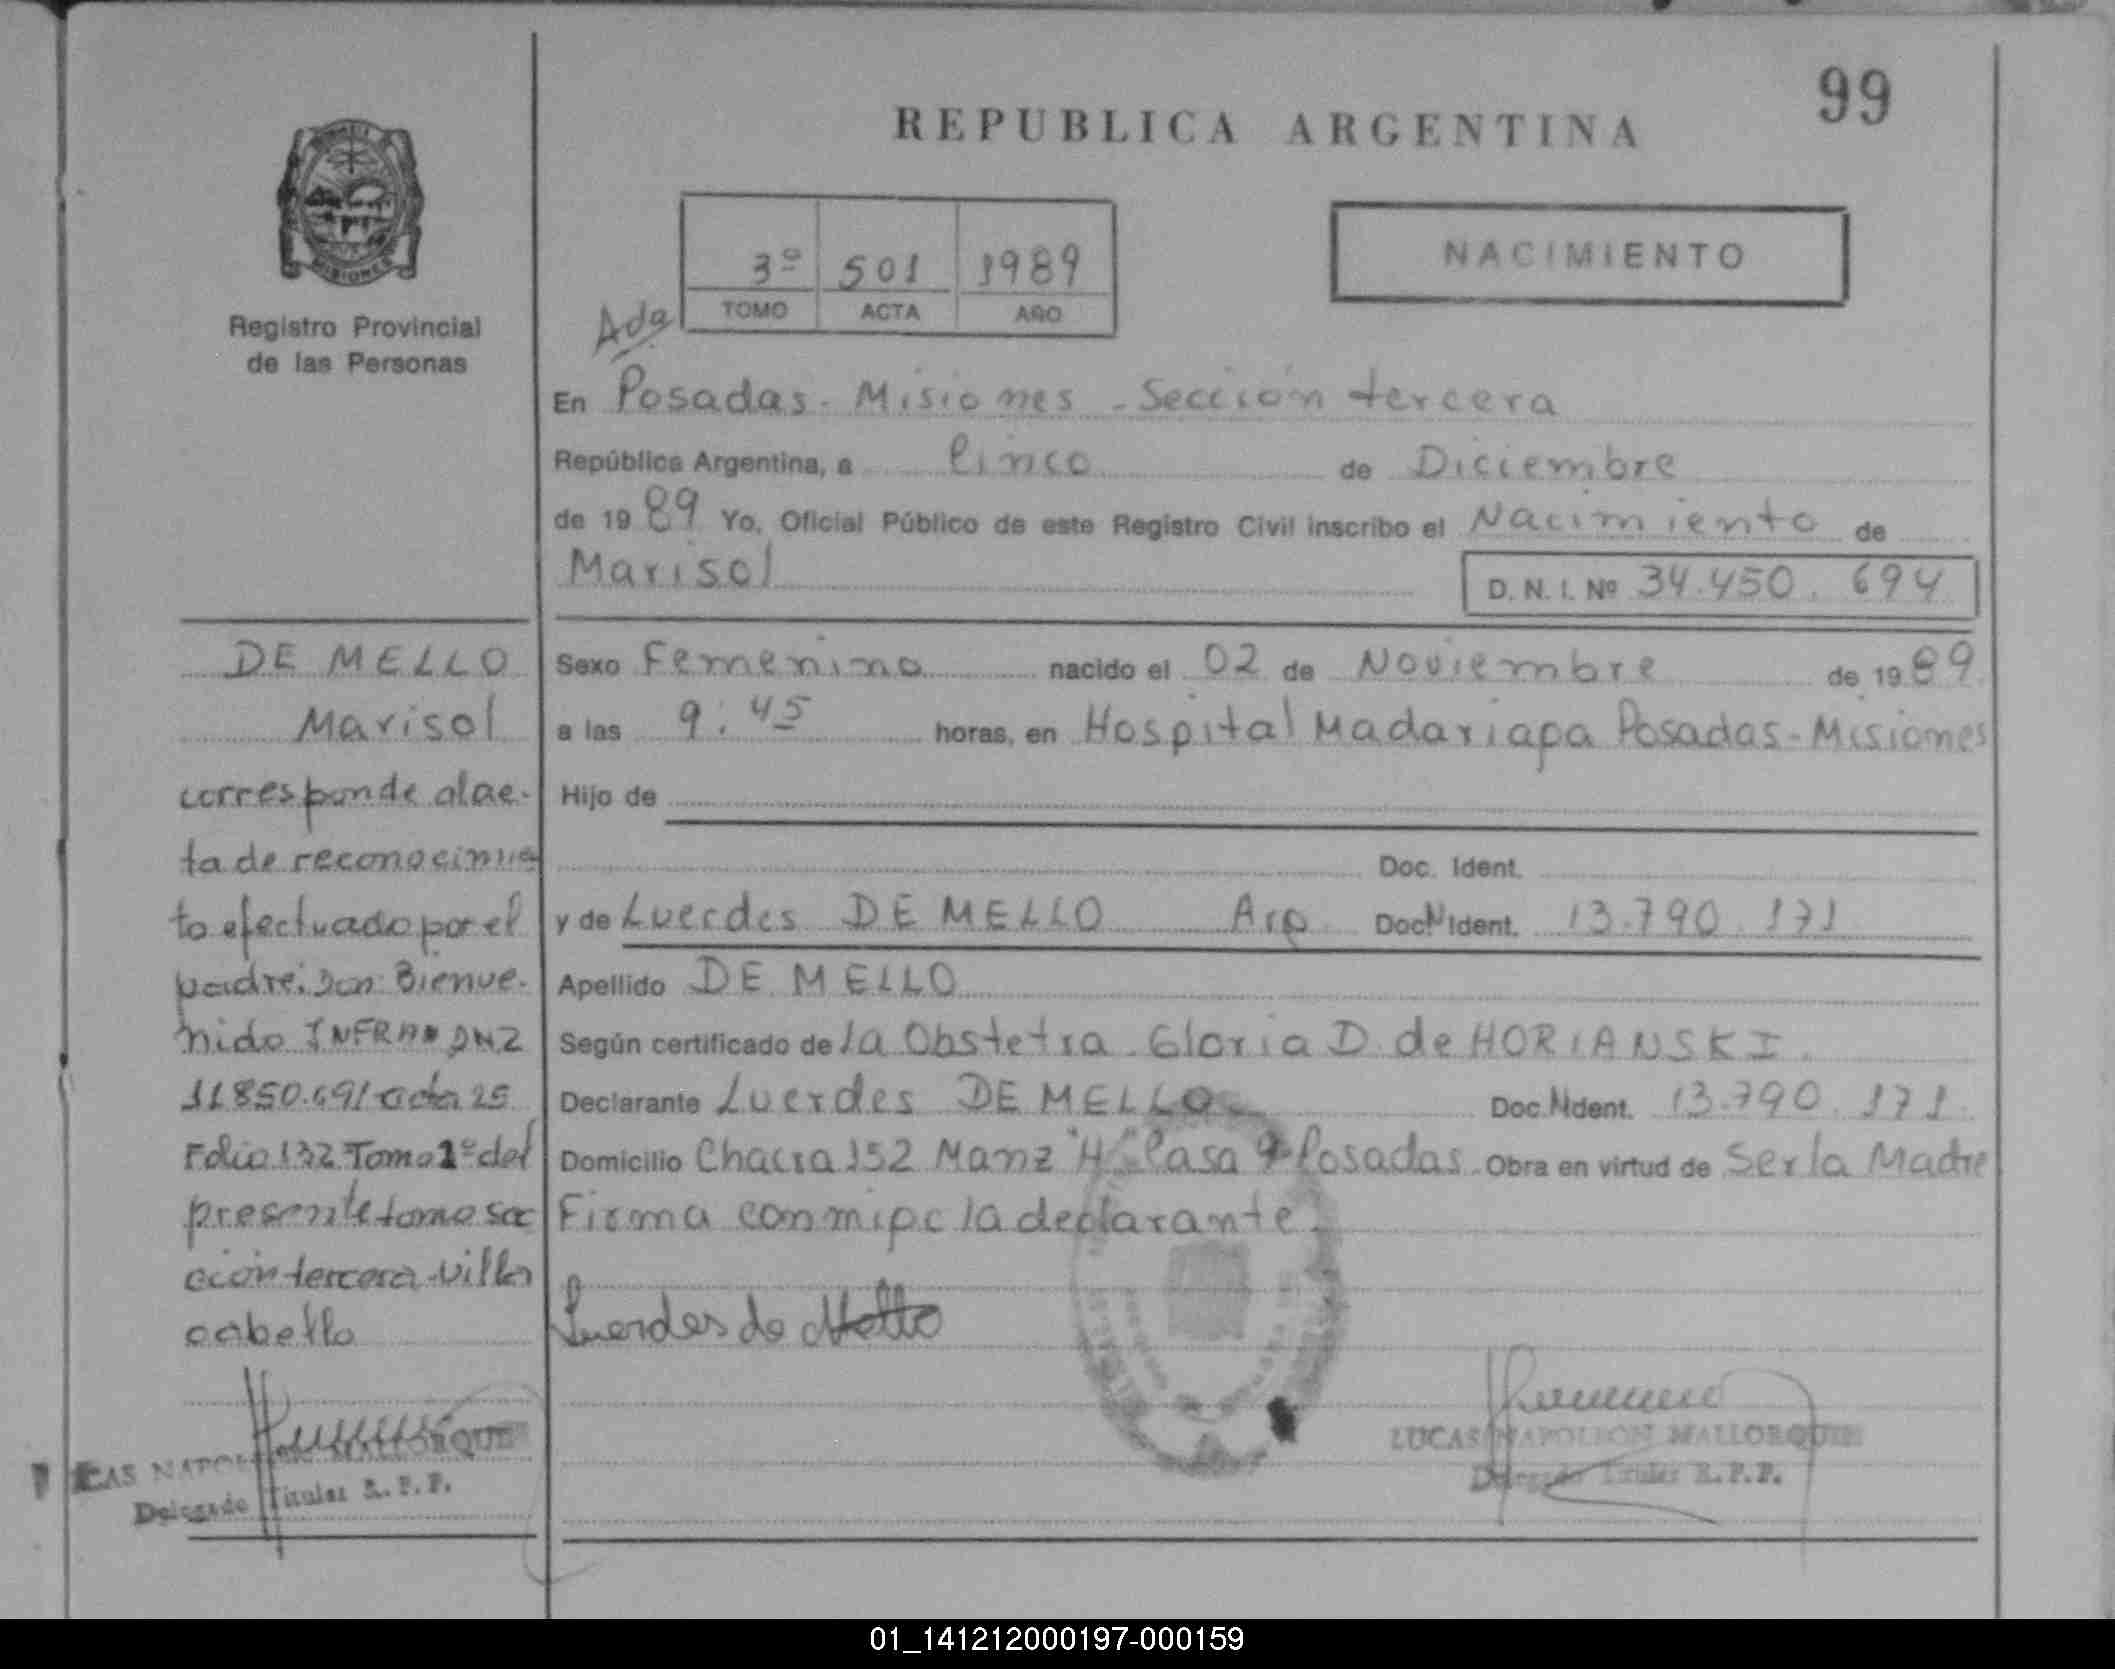 99
REPUBLICA ARGENTINA
MISIONES
Registro Provincial
de las Personas
3º 501 1989
TOMO ACTA AÑO
NACIMIENTO
Ada
En Posadas - Misiones - Sección tercera
República Argentina, a Cinco de Diciembre
de 1989 Yo, Oficial Público de este Registro Civil inscribo el Nacimiento de
Marisol
D. N. I. Nº 34.450.694
Sexo Femenino nacido el 02 de Noviembre de 1989
a las 9:45 horas, en Hospital Madariaga Posadas - Misiones
Hijo de
Doc. Ident.
y de Luerdes DE MELLO Arg. Doc N Ident. 13.790.171
Apellido DE MELLO
Según certificado de la Obstetra Gloria D. de HORIANSKI.
Declarante Luerdes DE MELLO Doc. N Ident. 13.790.171
Domicilio Chacra 152 Manz "H" Casa 9 Posadas. Obra en virtud de Ser la Madre
Firma conmigo la declarante.
Luerdes de Mello
LUCAS NAPOLEON MALLORQUIN
Delegado Titular R.P.P.
DE MELLO
Marisol
corresponde al ac-
ta de reconocimie
to efectuado por el
padre: Don Bienve-
nido DNI
11.850.691 acta 25
Folio 132 Tomo 1º del
presente tomo sec
ción tercera - villa
cabello
CAS NAPOLEON MALLORQUIN
Delegado Titular R.P.P.
01_141212000197-000159